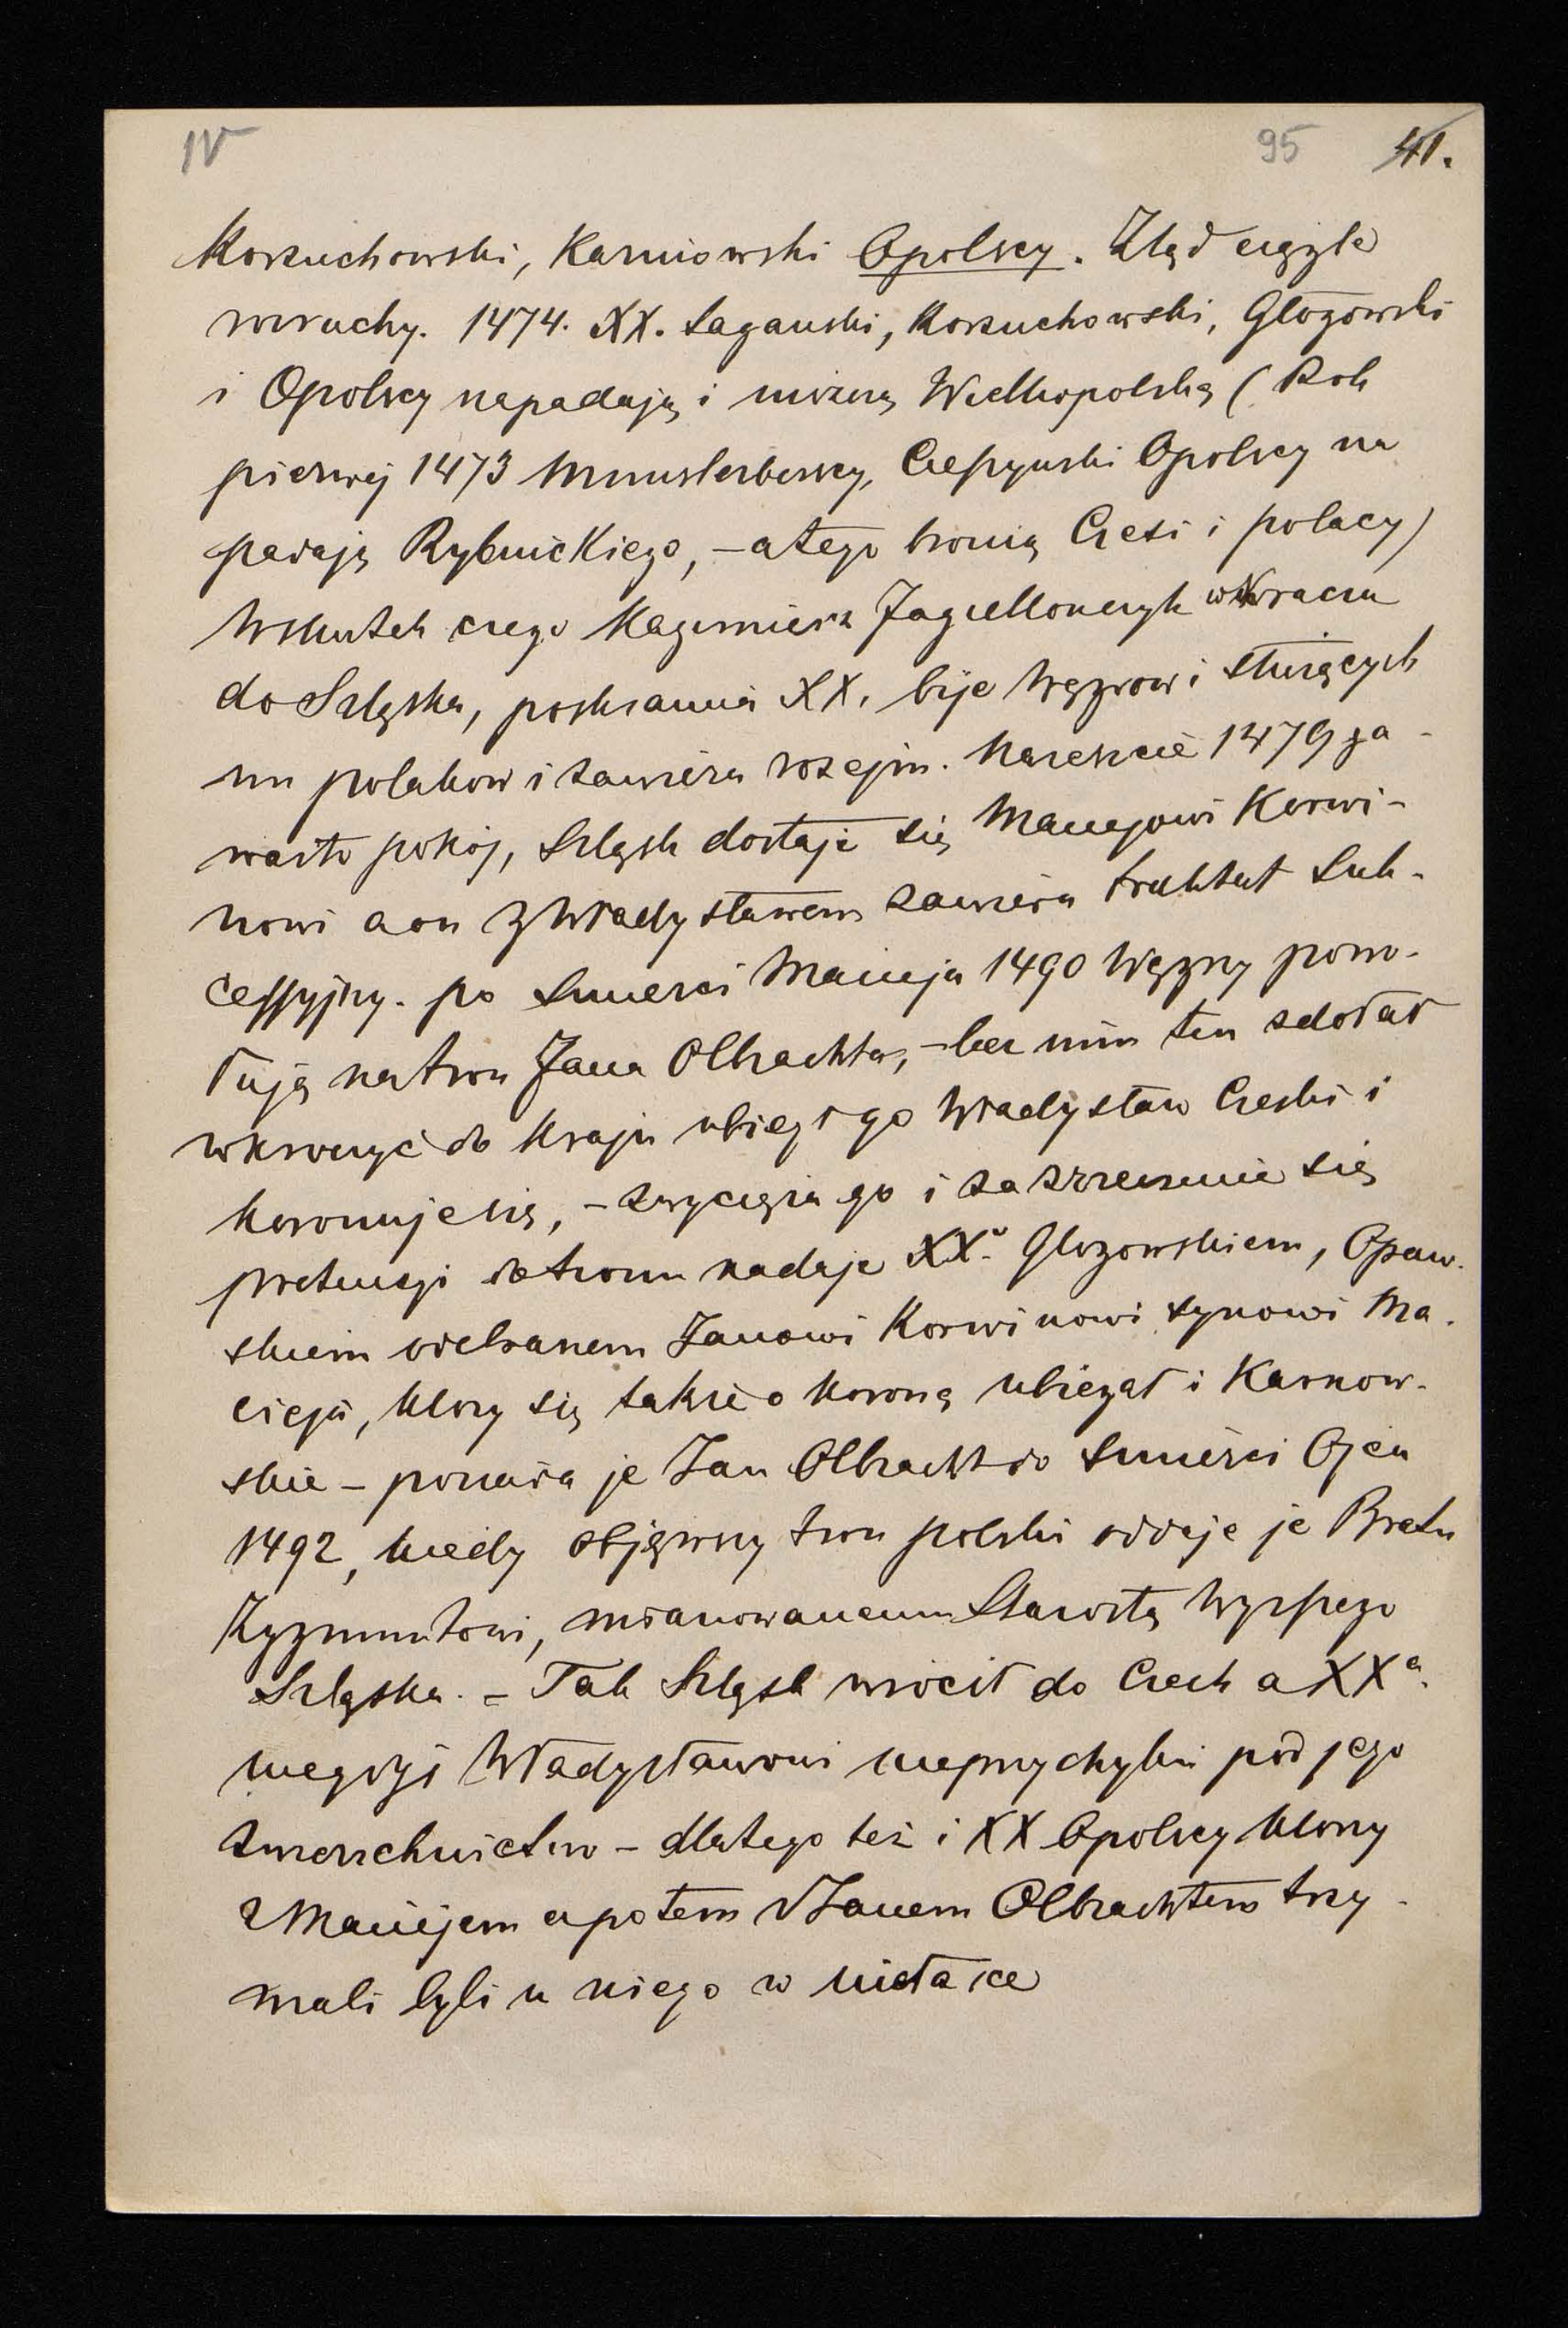 IV 95 41.
Korzuchowski, Karniowski Opolscy. Ztąd ciągłe
rozruchy. 1474. XX. Sagański, Korzuchowski, Głogowski
i Opolscy napadają i niszczą Wielkopolskę (Rok
pierwej 1473 Munsterberscy, Cieszyński Opolscy na
padają Rybnickiego, – a tego bronią Czesi i polacy)
Wskutek czego Kazimierz Jagiellończyk wkracza
do Szląska, poskramia XX, bije Węgrów i służących
im polaków i zawiera rozejm. Nareszcie 1479 za-
warto pokój, Szląsk dostaje się Maciejowi Korwi-
nowi a on z Władysławem zawiera traktat Suk-
cessyjny. po Smierci Macieja 1490 Węgrzy powo-
łują na tron Jana Olbrachta, – lecz nim ten zdołał
wkroczyć do Kraju ubiegł go Władysław Czeski i
koronuje się, – zwycięża go i za zrzeczenie się
pretensji do tronu nadaje XX. Głogowskiem, Opaw-
skiem odebranem Janowi Korwinowi synowi Ma-
cieja, który się także o koronę ubiegał i Karnow-
skie – posiada je Jan Olbracht do Smierci Ojca
1492, kiedy objąwszy tron polski oddaje je Bratu
Zygmuntowi, mianowanemu Starostą Wyższego
Szląska. – Tak Szląsk wrócił do Czech a XXa
niegdyś Władysławowi nieprzychylni pod jego
zwierzchnictwo – dlatego też i XX Opolscy którzy
z Maciejem a potem z Janem Olbrachtem trzy-
mali byli u niego w niełasce